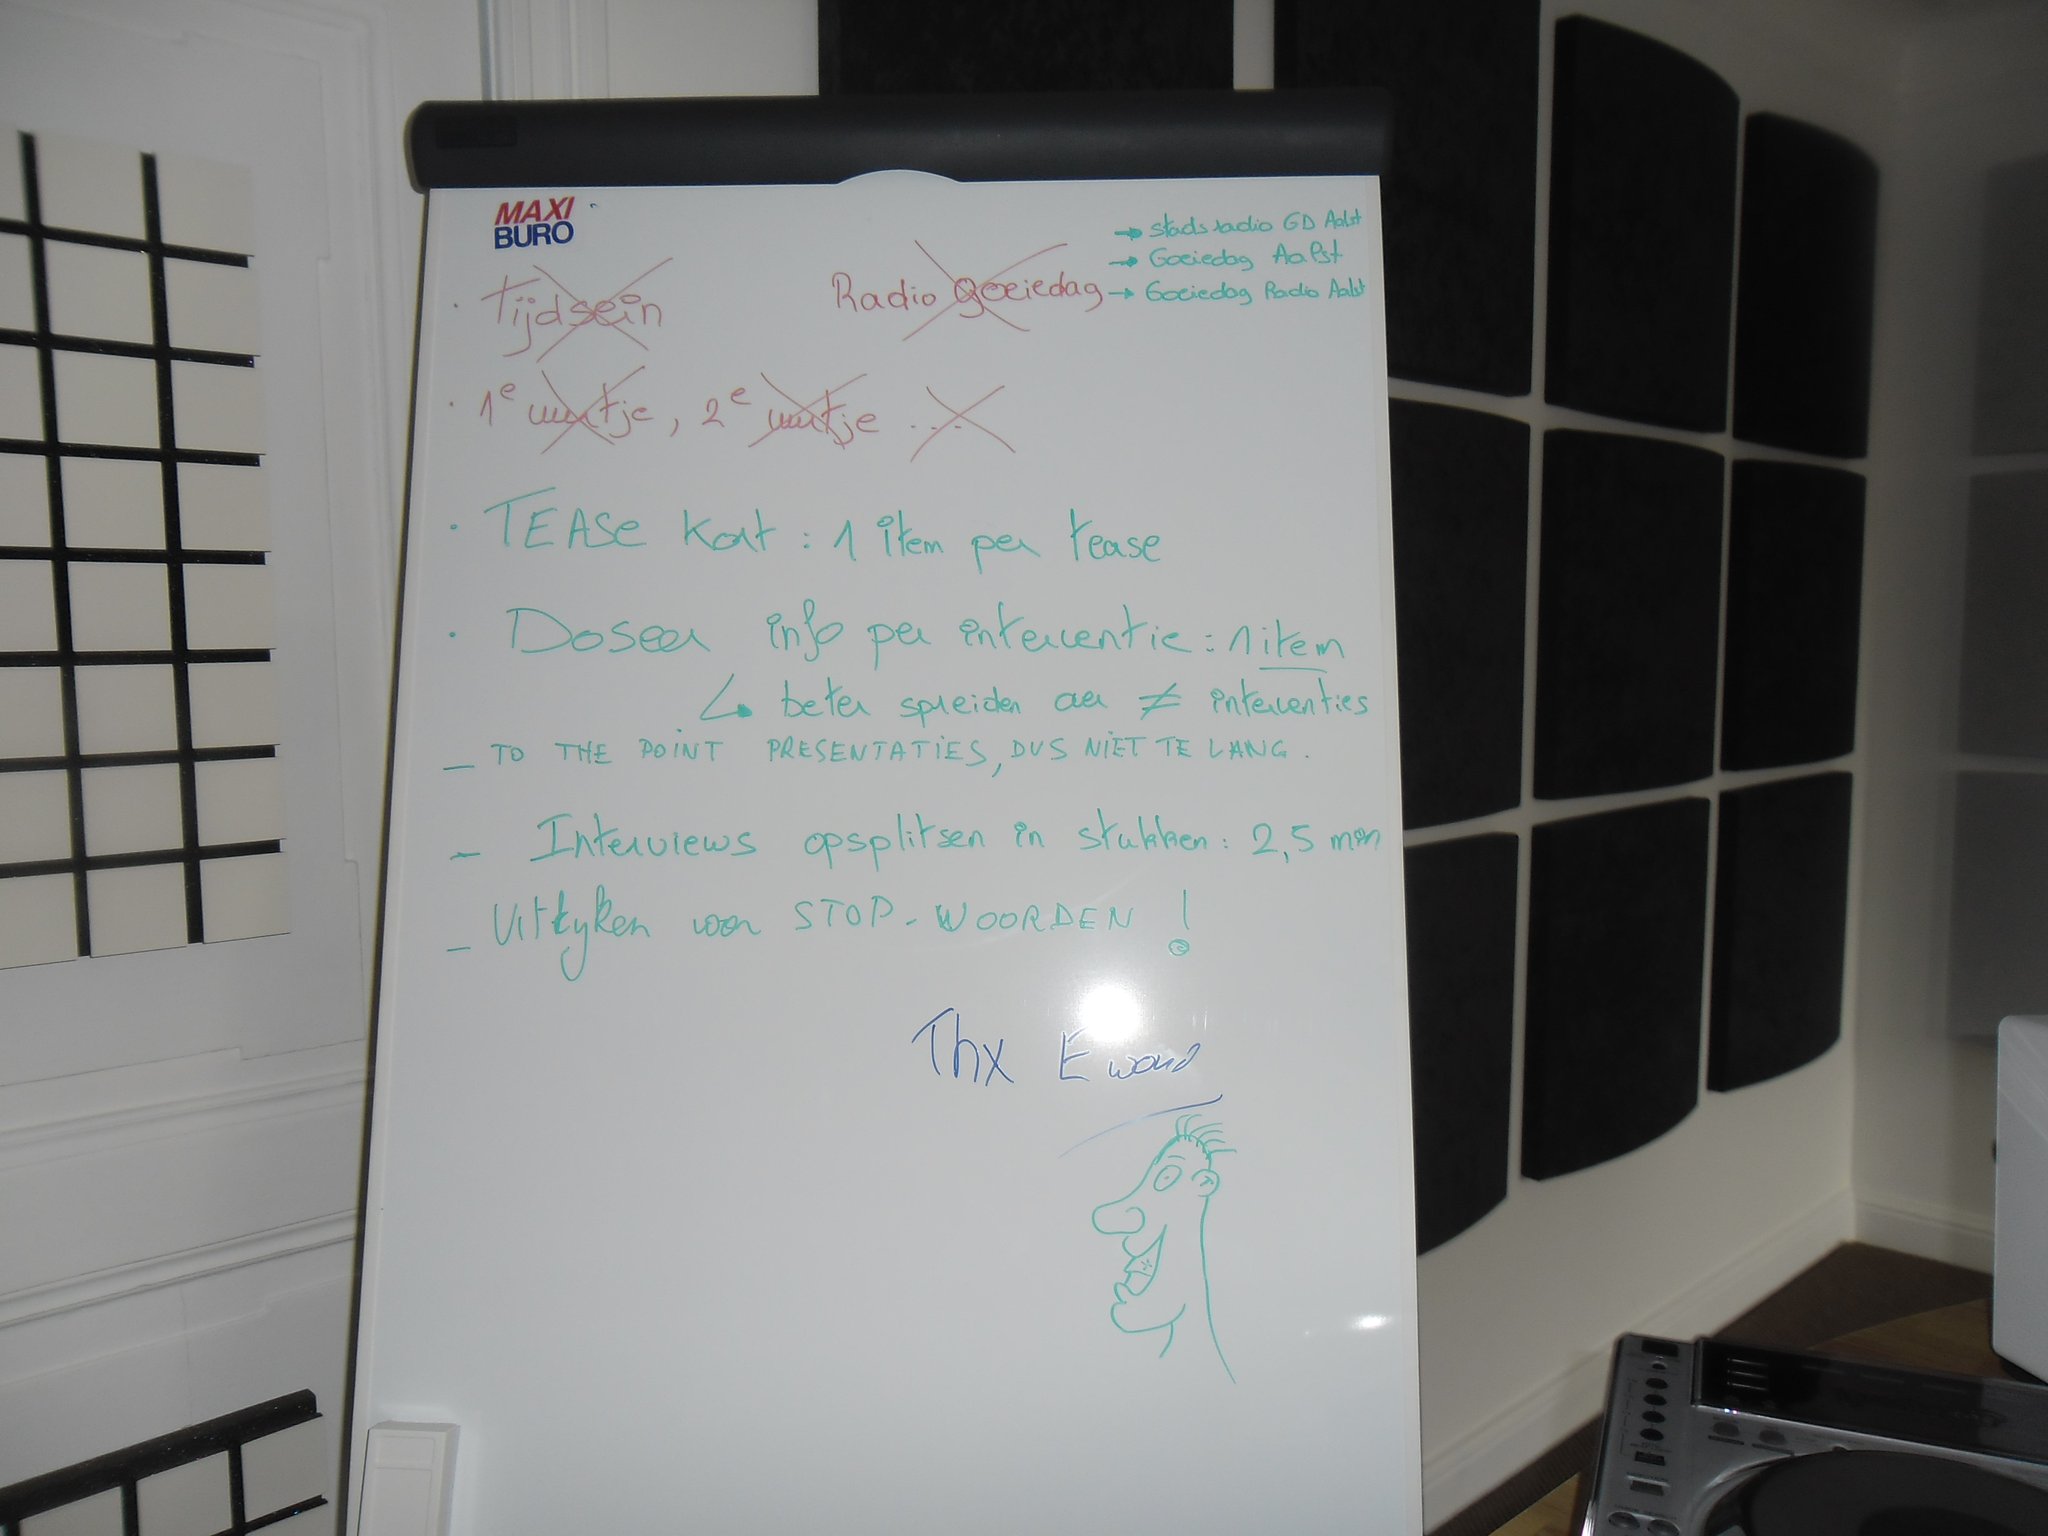 MAXI
BURO
→ stadsradio GD Aalst
→ Goeiedag Aalst
· Tijdsein Radio goeiedag → Goeiedag Radio Aalst
· 1e uurtje, 2e uurtje ...
· TEASE Kort : 1 item per tease
· Doseer info per interventie : 1 item
↳ beter spreiden over ≠ interventies
_ TO THE POINT PRESENTATIES, DUS NIET TE LANG.
- Interviews opsplitsen in stukken : 2,5 min
_ Uitkyken voor STOP-WOORDEN !
Thx Eward